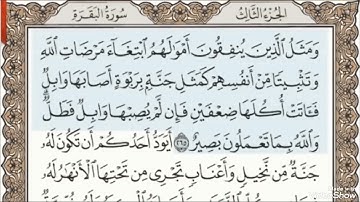 الجزء الثالث
سورة البقرة
ومثل الذين ينفقون أموالهم ابتغاء مرضات الله
وتثبيتا من أنفسهم كمثل جنة بربوة أصابها وابل
فـٔاتت أكلها ضعفين فإن لم يصبها وابل فطل
والله بما تعملون بصير ٢٦٥ أيود أحدكم أن تكون له
جنة من نخيل وأعناب تجري من تحتها الأنهار له